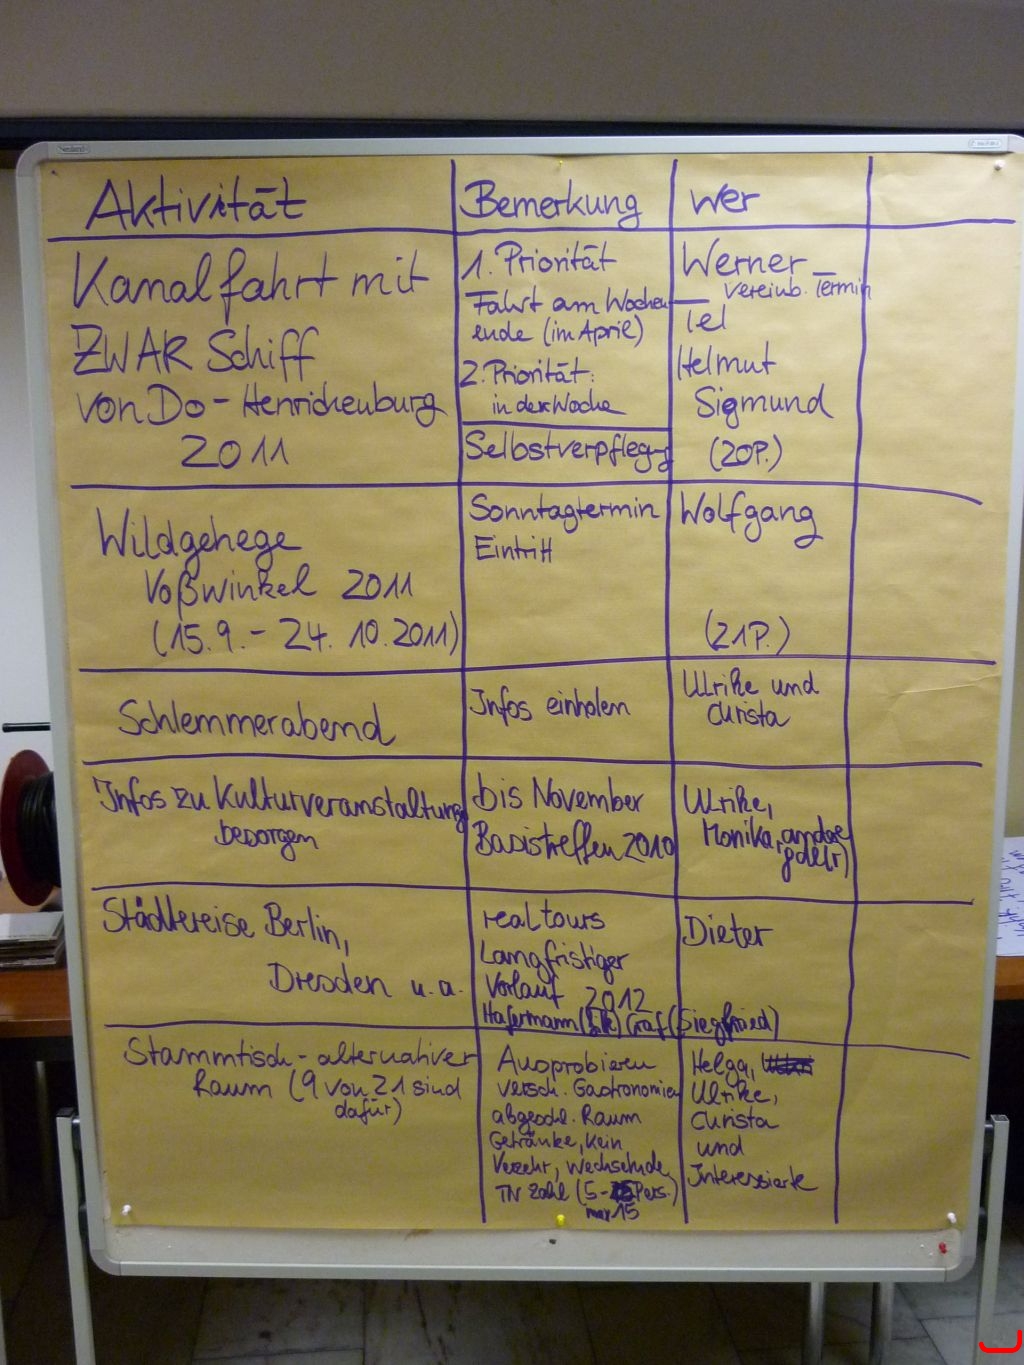 Aktivität
Bemerkung
Wer
Kanalfahrt mit
ZWAR Schiff
von Do - Henrichenburg
2011
1. Priorität
Fahrt am Wochen-
ende (im April)
2. Priorität:
in der Woche
Selbstverpfleg-g
Werner
vereinb. Termin
Tel
Helmut
Sigmund
(20P.)
Wildgehege
Voßwinkel 2011
(15.9. - 24.10.2011)
Sonntagtermin
Eintritt
Wolfgang
(21P.)
Schlemmerabend
Infos einholen
Ulrike und
Christa
Infos zu Kulturveranstaltung
besorgen
bis November
Basistreffen 2010
Ulrike,
Monika, andere
Städtereise Berlin,
Dresden u.a.
realtours
Langfristiger
Vorlauf 2012
Hafermann Graf (Siegfried)
Dieter
Stammtisch - alternativer
Raum (9 von 21 sind
dafür)
Ausprobieren
versch. Gastronomien
abgeschl. Raum
Getränke, kein
Verzehr, Wechselnde
TN Zahl (5- Pers.)
max 15
Helga,
Ulrike,
Christa
und
Interessierte